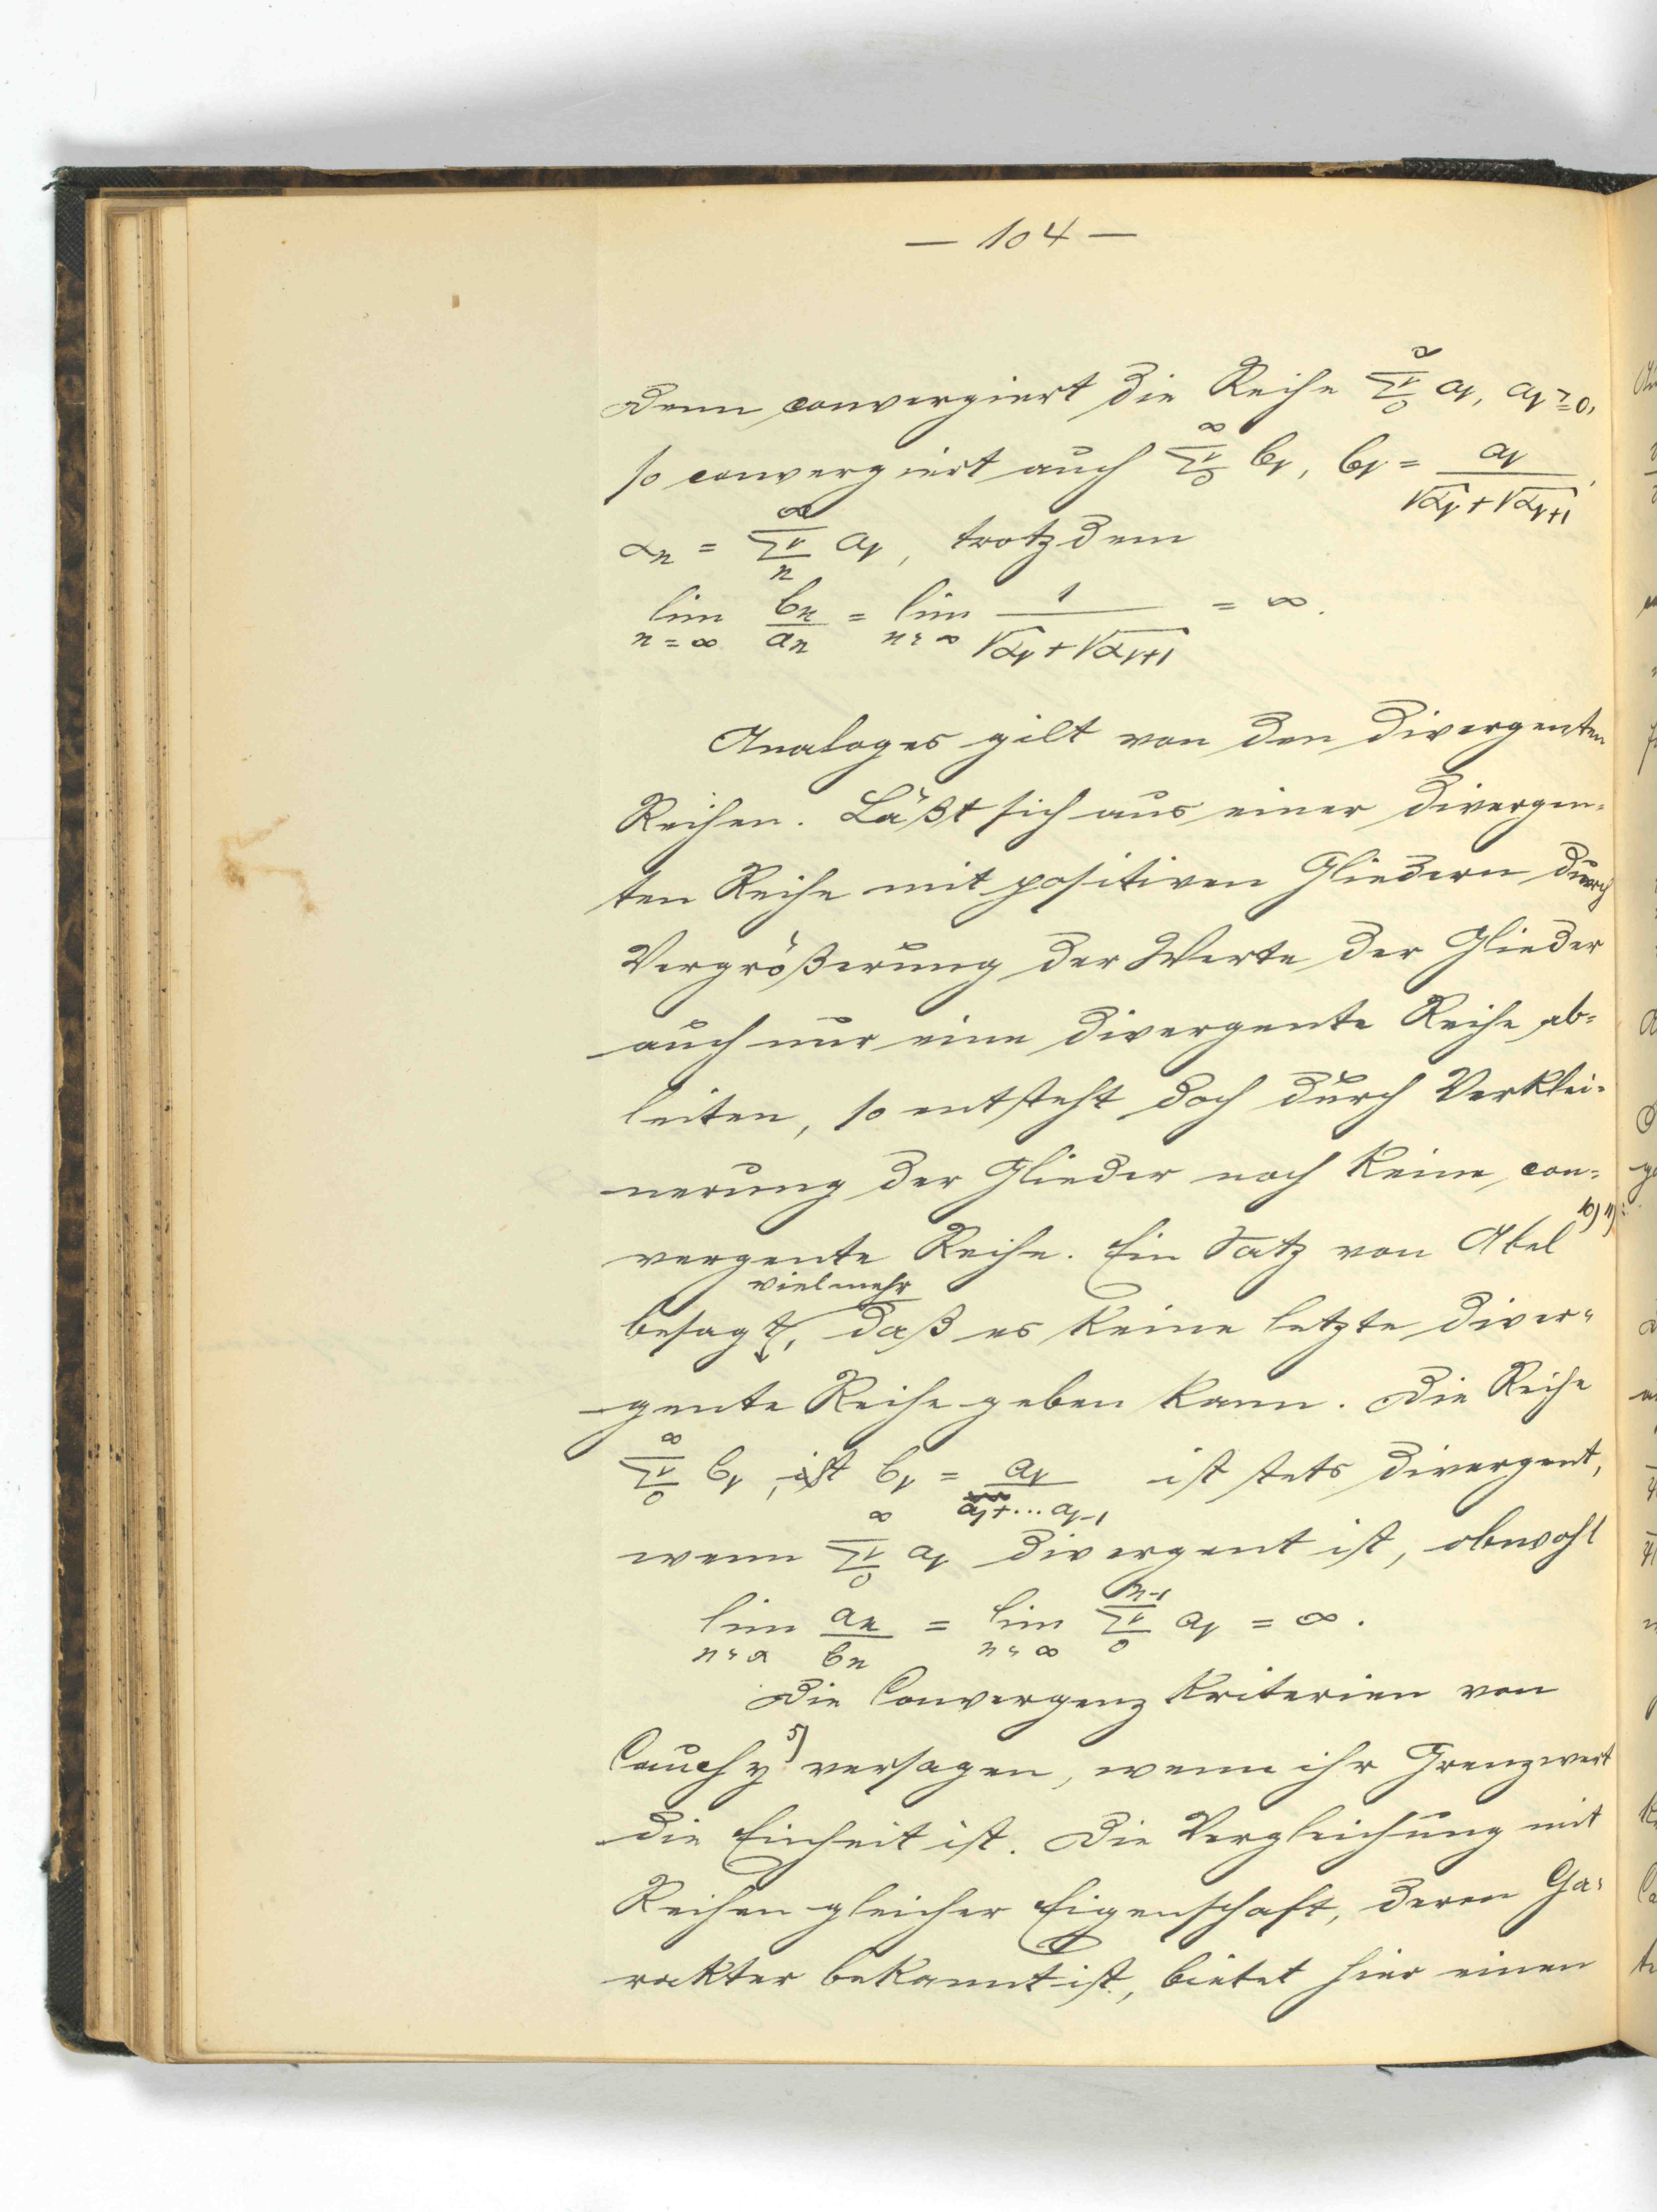 — 104 —
Denn convergiert die Reihe ∞Σν0 aν, aν ≧ 0,
so convergiert auch ∞Σν0 bν, bν = aν/(√αν + √αν+1),
αn = ∞Σνn aν, trotzdem
lim n=∞ bn/an = lim n=∞ 1/(√αν + √αν+1) = ∞.
Analoges gilt von den divergenten
Reihen. Läßt sich aus einer divergen=
ten Reihe mit positiven Gliedern durch
Vergrößerung der Werte der Glieder
auch nur eine divergente Reihe ab=
leiten, so entsteht doch durch Verklei=
nerung der Glieder noch keine con=
vergente Reihe. Ein Satz von Abel 10) 11)
vielmehr
besagt, daß es keine letzte diver=
gente Reihe geben kann. Die Reihe
∞Σν0 bν, ist bν = aν/(a1+...aν-1) ist stets divergent,
wenn ∞Σν0 aν divergent ist, obwohl
lim n=∞ an/bn = lim n=∞ n-1Σν0 aν = ∞.
Die Convergenzkriterien von
Cauchy 5) versagen, wenn ihr Grenzwert
die Einheit ist. Die Vergleichung mit
Reihen gleicher Eigenschaft, deren Ca=
rakter bekannt ist, bietet hier einen